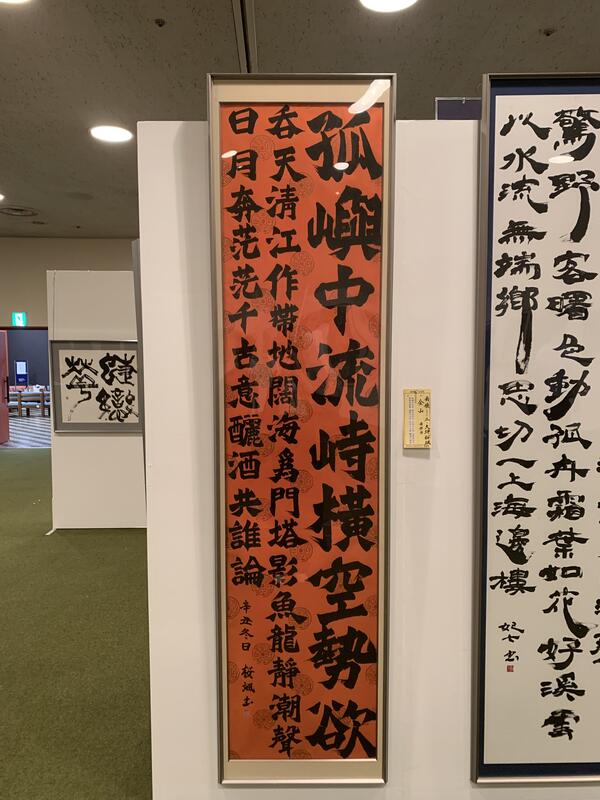 孤嶼中流峙橫空勢欲
呑天淸江作帶地闊海爲門塔影魚龍靜潮聲
日月奔茫茫千古意釃酒共誰論
辛丑冬日 桜楓書
金山
驚野客曙色動孤舟霜葉如花好溪雲
以水流無端鄉思切一上海邊樓